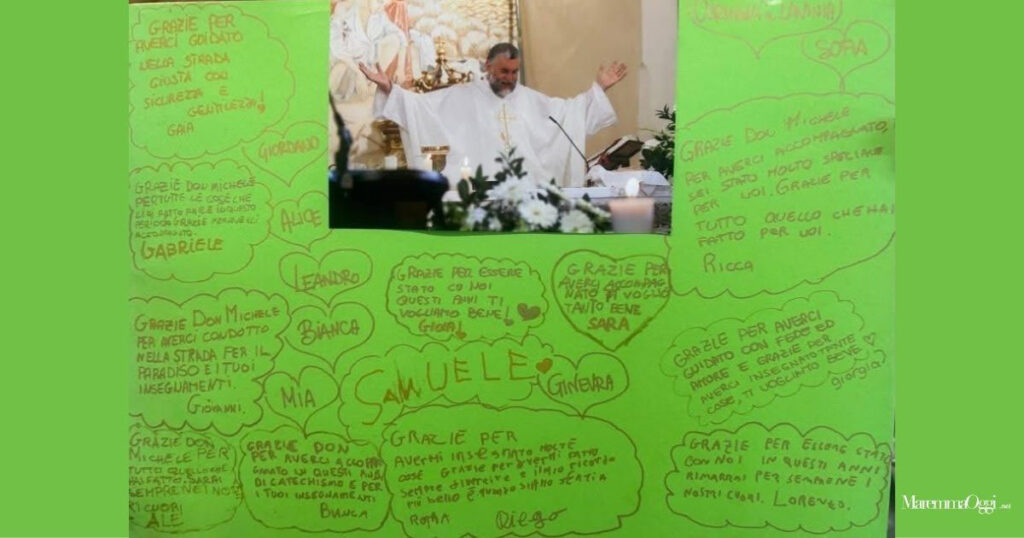 GRAZIE PER
AVERCI GUIDATO
NELLA STRADA
GIUSTA CON
SICUREZZA E
GENTILEZZA!
GAIA
GIORDANO
GRAZIE DON MICHELE
PER TUTTE LE COSE CHE
GABRIELE
ALICE
LEANDRO
BIANCA
GRAZIE DON MICHELE
PER AVERCI CONDOTTO
NELLA STRADA PER IL
PARADISO E I TUOI
INSEGNAMENTI.
GIOVANNI.
MIA
GRAZIE DON
MICHELE PER
TUTTO QUELLO CHE
HAI FATTO. SARAI
SEMPRE NEI NOSTRI
CUORI
ALE
GRAZIE DON
PER AVERCI ACCOMPA
GNATO IN QUESTI ANNI
DI CATECHISMO E PER
I TUOI INSEGNAMENTI
BIANCA
GRAZIE PER ESSERE
STATO CO NOI
QUESTI ANNI TI
VOGLIAMO BENE!
GIOIA!
GRAZIE PER
AVERCI ACCOMPA
GNATO TI VOGLIO
TANTO BENE
SARA
SAMUELE
GINEVRA
GRAZIE PER
AVERMI INSEGNATO MOLTE
COSE GRAZIE PER AVERMI FATTO
SEMPRE DIVERTIRE E IL MIO RICORDO
PIÙ BELLO È QUANDO SIAMO STATI A
ROMA
DIEGO
SOFIA
GRAZIE DON MICHELE
PER AVERCI ACCOMPAGNATO,
SEI STATO MOLTO SPECIALE
PER NOI. GRAZIE PER
TUTTO QUELLO CHE HAI
FATTO PER NOI.
RICCA
GRAZIE PER AVERCI
GUIDATO CON FEDE ED
AMORE E GRAZIE PER
AVERCI INSEGNATO TANTE
COSE, TI VOGLIAMO BENE
giorgia
GRAZIE PER ESSERE STATO
CON NOI IN QUESTI ANNI
RIMARRAI PER SEMPRE NEI
NOSTRI CUORI. LORENZO.
MaremmaOggi.net